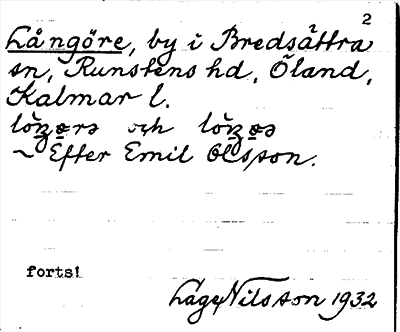 2
Långöre, by i Bredsättra
sn, Runstens hd, Öland,
Kalmar l.
och
~ Efter Emil Olsson.
forts!
Lage Nilsson 1932